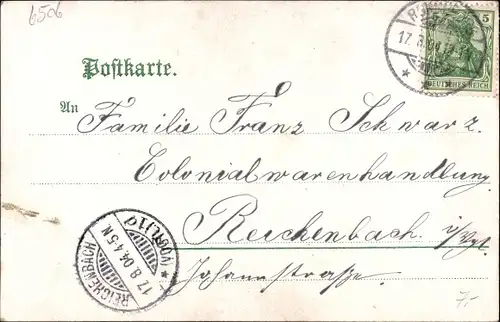 6506
5
DEUTSCHES REICH
17.8.04
Postkarte.
An
Familie Franz Schwarz.
Colonialwarenhandlung
Reichenbach i/Vgt.
Johannstraße.
REICHENBACH
17.8.04.4-5N.
(VOGTL.) 1d
7,-